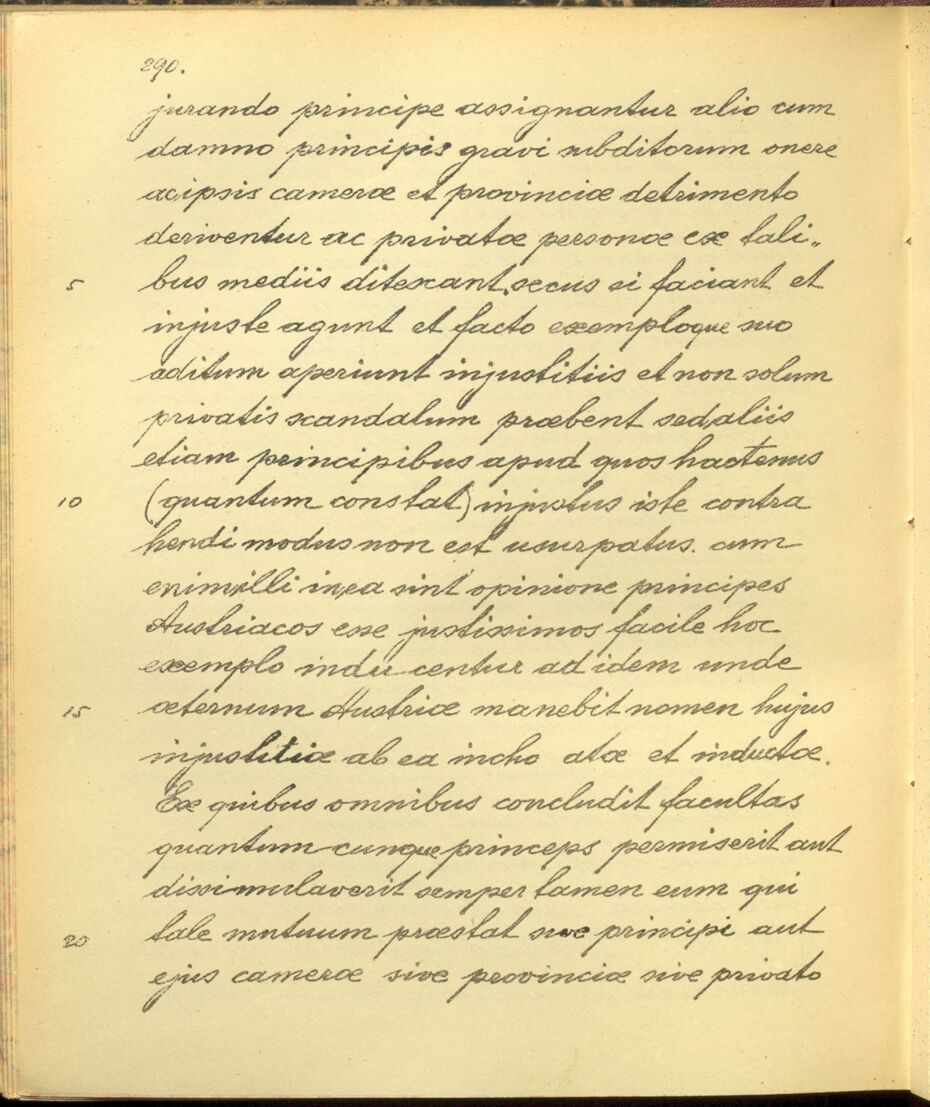 290.
jurando principe assignantur alio cum
damno principis gravi subditorum onere
ac ipsis cameræ et provinciæ detrimento
deriventur ac privatæ personæ ex tali„
5 bus mediis ditescant, secus si faciant et
injuste agunt et facto exemploque suo
aditum aperiunt injustitiis et non solum
privatis scandalum præbent sed aliis
etiam principibus apud quos hactenus
10 (quantum constat) injustus iste contra
hendi modus non est usurpatus. cum
enim illi in ea sint opinione principes
Austriacos esse justissimos facile hoc
exemplo inducentur ad idem unde
15 æternum Austriæ manebit nomen hujus
injustitiæ ab ea incho atæ et inductæ.
Ex quibus omnibus concludit facultas
quantum-cunque princeps permiserit aut
dissimulaverit semper tamen eum qui
20 tale mutuum præstat sive principi aut
ejus cameræ sive provinciæ sive privato